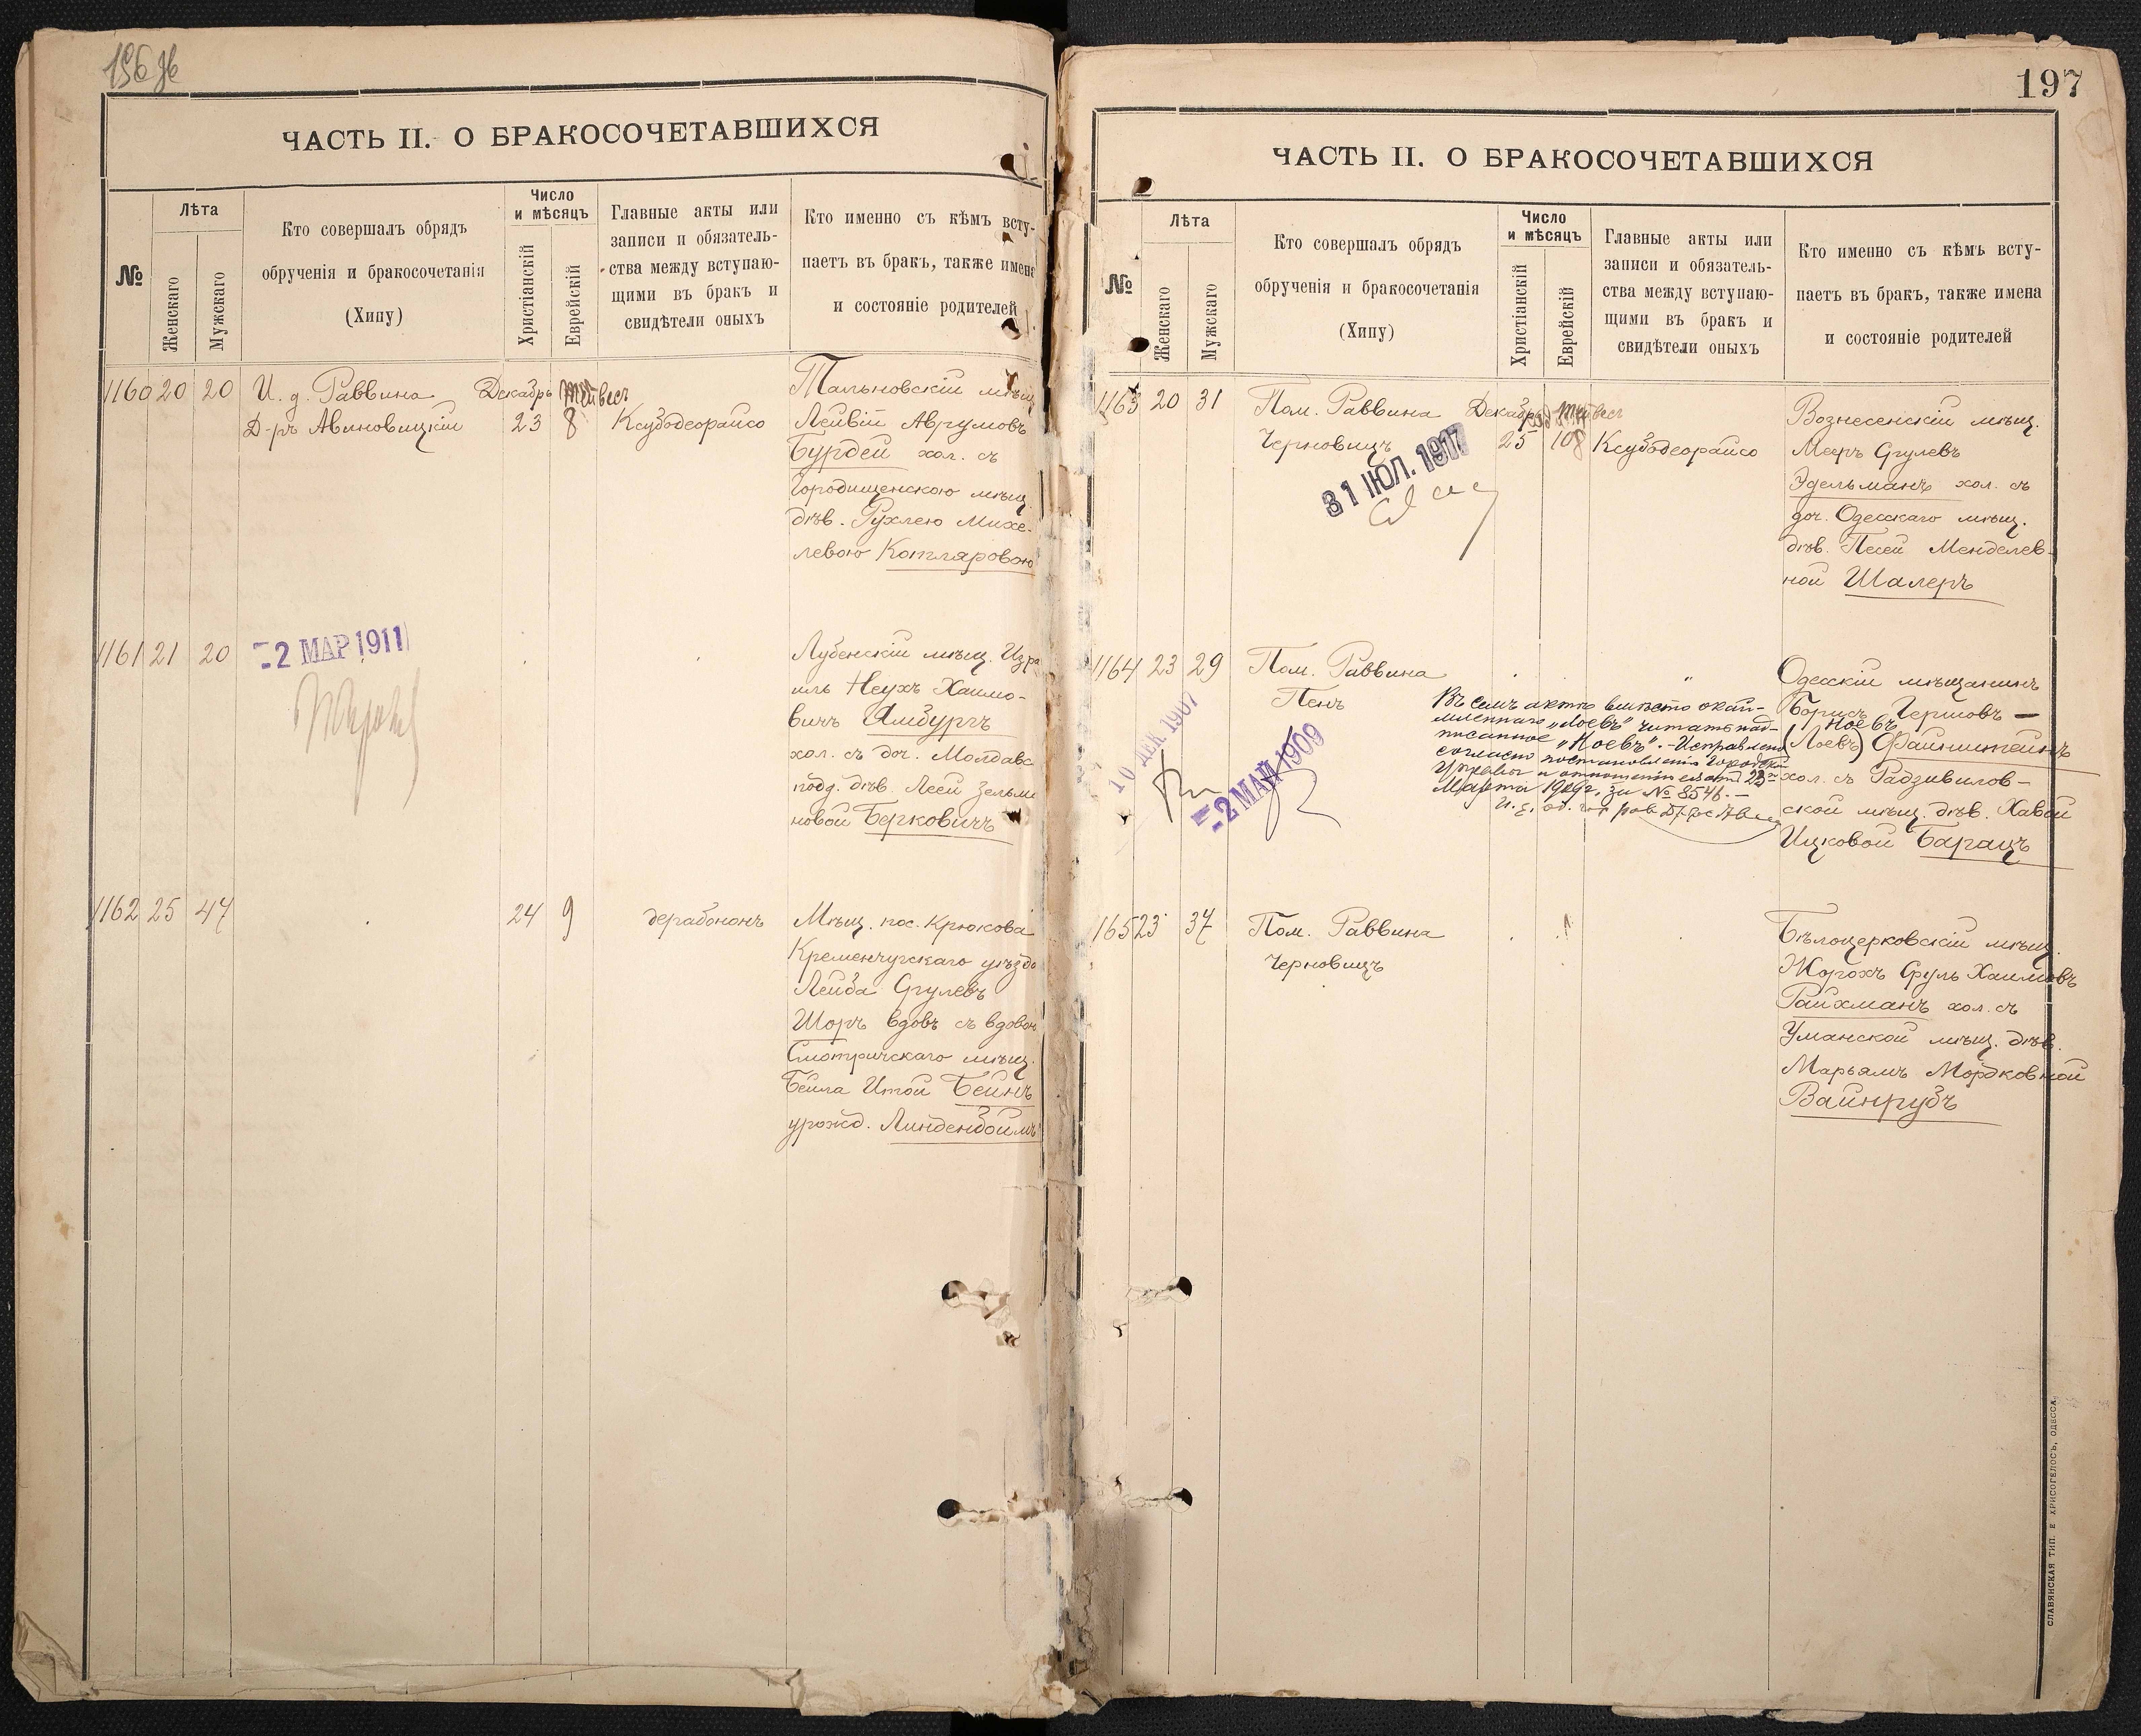 ЧАСТЬ II. О БРАКОСОЧЕТАВШИХСЯ
№
Лѣта
Женскаго
Мужскаго
Кто совершалъ обрядъ
обрученія и бракосочетанія
(Хипу)
Число
и мѣсяцъ
Христіанскій
Еврейскій
Главные акты или
записи и обязатель-
ства между вступаю-
щими въ бракъ и
свидѣтели оныхъ
Кто именно съ кѣмъ всту-
паетъ въ бракъ, также имена
и состояніе родителей
1160 20 20
И. д. Раввина
Д-ръ Авиновицкій
Декабрь Тейвесъ
23 8
Ксубодеорайсо
Тальновскій мѣщ.
Лейвій Аврумовъ
Бурдей хол. съ
Городищенскою мѣщ.
дѣв. Рухлею Михе-
левою Котляровою
1161 21 20
2 МАР 1911
Лубенскій мѣщ. Изра
иль Неухъ Хаимо-
вичъ Амбургъ
хол. съ доч. Молдавс
подд. дѣв. Леей Зельма
новой Берковичъ
1162 25 47
24 9
дерабононъ
Мѣщ. пос. Крюкова
Кременчугскаго уѣзда
Лейба Срулевъ
Шоръ вдовъ съ вдовой
Смотричскаго мѣщ.
Бейла Итой Бейнъ
урожд. Линденбоймъ
197
ЧАСТЬ II. О БРАКОСОЧЕТАВШИХСЯ
№
Лѣта
Женскаго
Мужскаго
Кто совершалъ обрядъ
обрученія и бракосочетанія
(Хипу)
Число
и мѣсяцъ
Христіанскій
Еврейскій
Главные акты или
записи и обязатель-
ства между вступаю-
щими въ бракъ и
свидѣтели оныхъ
Кто именно съ кѣмъ всту-
паетъ въ бракъ, также имена
и состояніе родителей
1163 20 31
Пом. Раввина
Черновицъ
31 ІЮЛ. 1917
Декабрь Тейвесъ
25 10
Ксубодеорайсо
Вознесенскій мѣщ.
Меръ Срулевъ
Эдельманъ хол. съ
доч. Одесскаго мѣщ.
дѣв. Песей Менделев-
ной Шалеръ
1164 23 29
Пом. Раввина
Пенъ
10 ДЕК 1907
2 МАЙ 1909
Въ семъ актѣ вмѣсто окай-
мленнаго „Лоевъ" читать над-
писанное „Ноевъ". - Исправлено
согласно постановленію Городской
Управы и отношенія ея отъ 23
Марта 1909 г. за № 8546. -
Одесскій мѣщанинъ
Борисъ Гершовъ —
Ноевъ
(Лоевъ) Файнштейнъ
хол. съ Радзивилов-
ской мѣщ. дѣв. Хавой
Ицковой Барацъ
1165 23 37
Пом. Раввина
Черновицъ
Бѣлоцерковскій мѣщ.
Жорохъ Сруль Хаимовъ
Райхманъ хол. съ
Уманской мѣщ. дѣв.
Марьямъ Мордковной
Вайнрубъ
СЛАВЯНСКАЯ ТИП. Е ХРИСОГЕЛОСЪ, ОДЕССА.